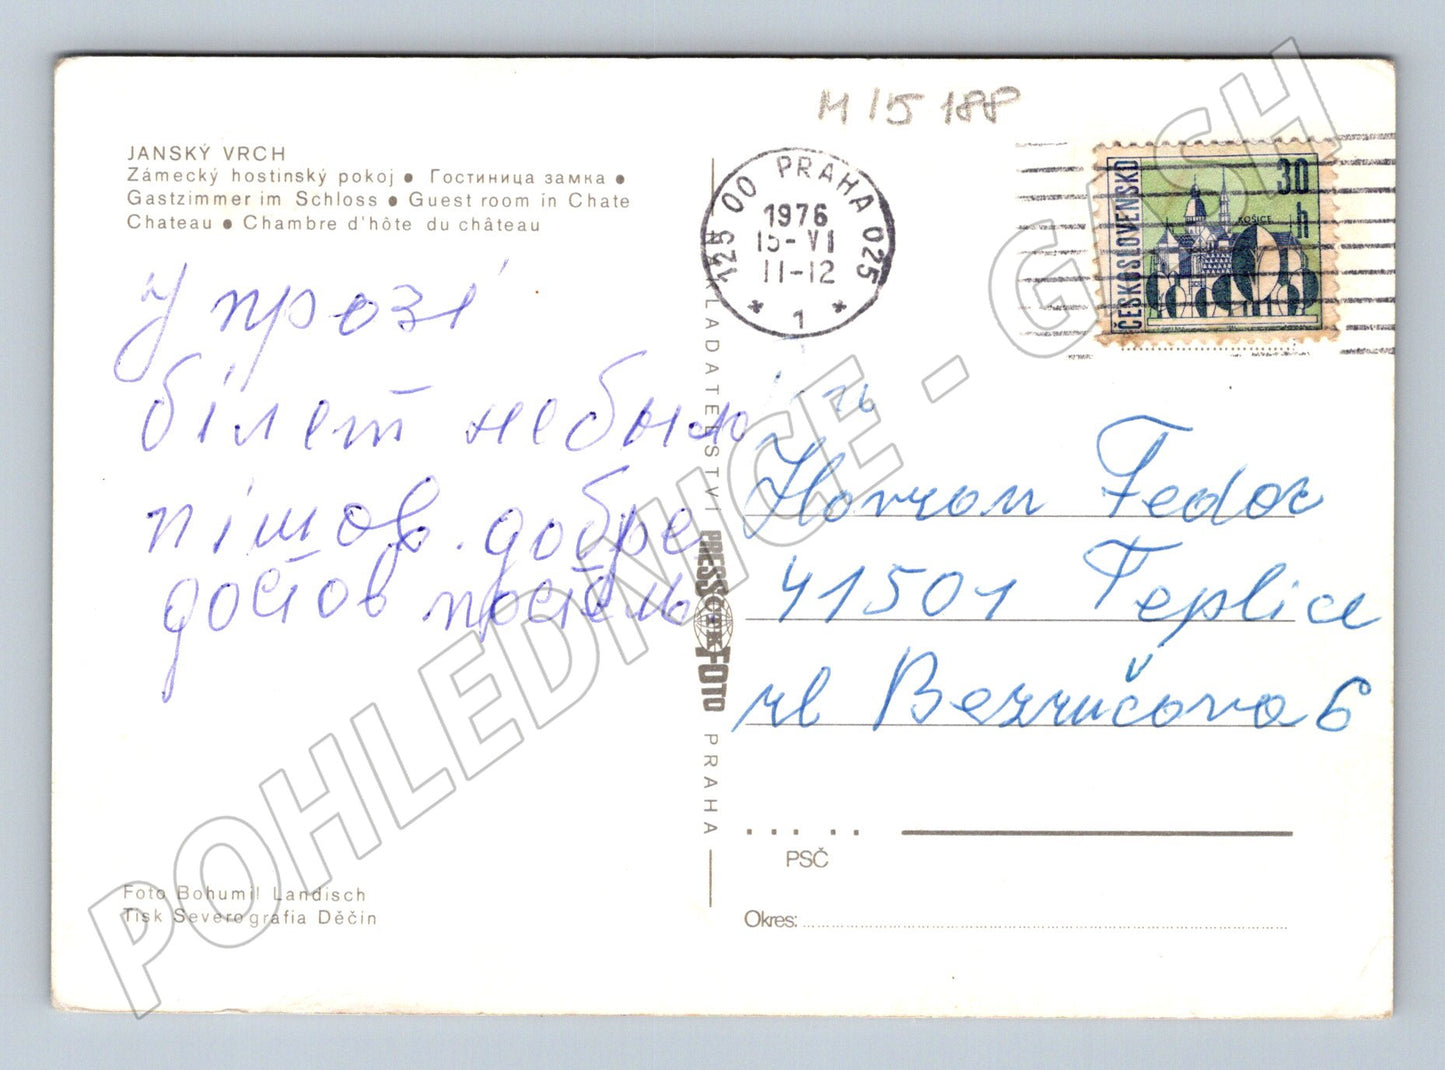 M 15 188
JANSKÝ VRCH
Zámecký hostinský pokoj ● Гостиница замка ●
Gastzimmer im Schloss ● Guest room in Chate
Chateau ● Chambre d'hôte du château
125 00 PRAHA 025
1976
15-VI
11-12
* 1 *
ČESKOSLOVENSKO
30
h
KOŠICE
у прозі
білет небыл
пішов. добре
достов постель
Fedor
41501 Teplice
ul Bezručova 6
NAKLADATELSTVÍ PRESSFOTO PRAHA
PSČ
Okres:
Foto Bohumil Landisch
Tisk Severografia Děčín
POHLEDNICE - GASH